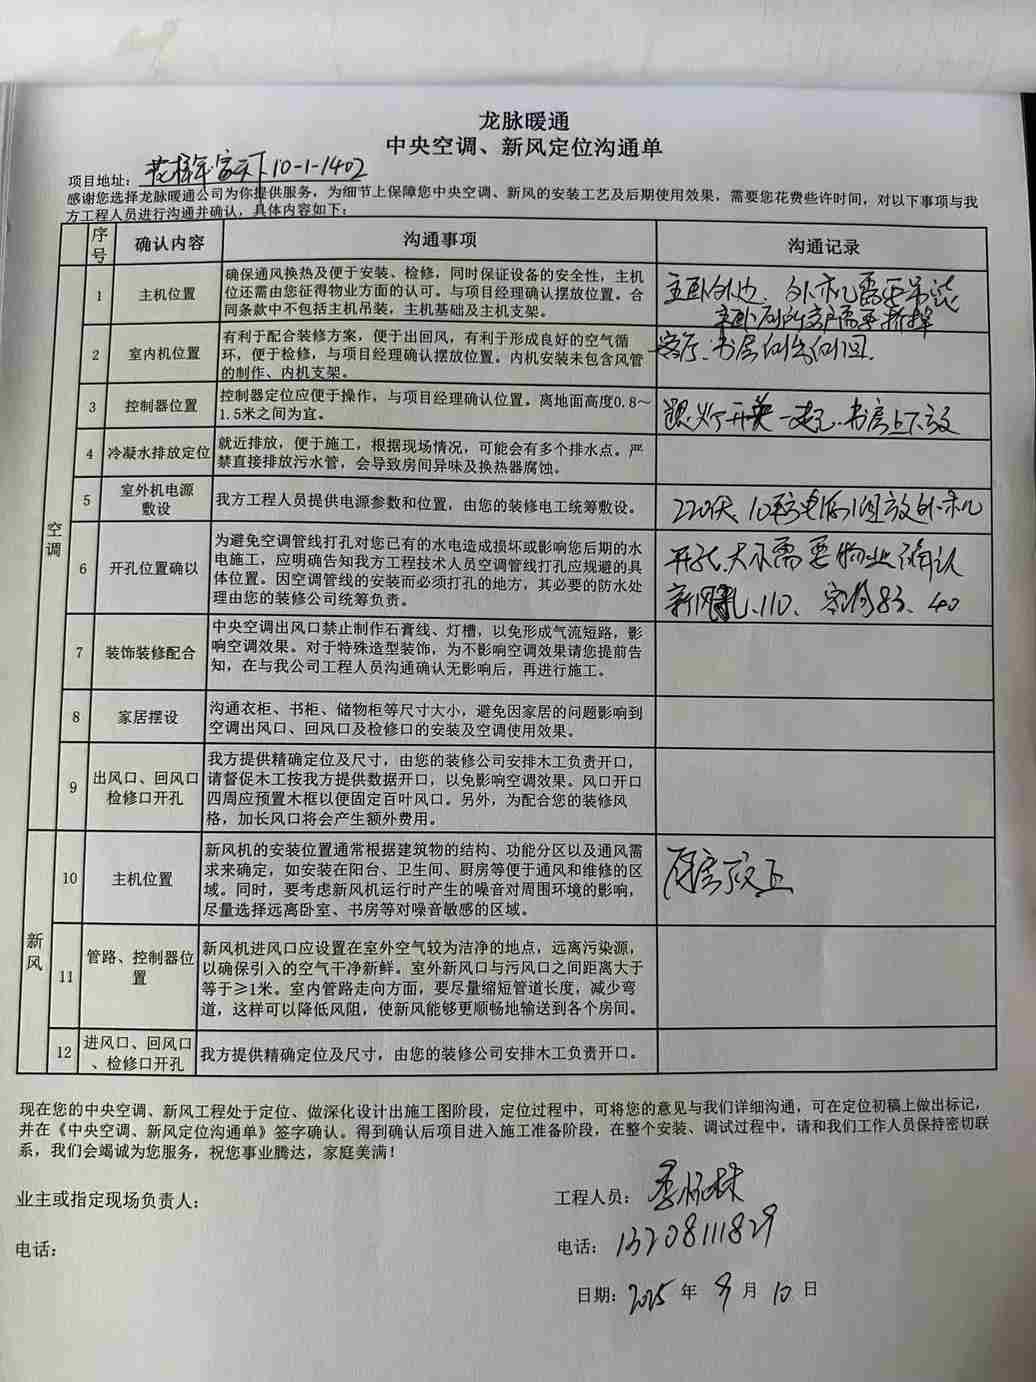 龙脉暖通
中央空调、新风定位沟通单
项目地址: 花样年家天下10-1-1402
感谢您选择龙脉暖通公司为你提供服务，为细节上保障您中央空调、新风的安装工艺及后期使用效果，需要您花费些许时间，对以下事项与我
方工程人员进行沟通并确认，具体内容如下:
序号 确认内容 沟通事项 沟通记录
空调
1 主机位置
确保通风换热及便于安装、检修，同时保证设备的安全性，主机
位还需由您征得物业方面的认可。与项目经理确认摆放位置。合
同条款中不包括主机吊装，主机基础及主机支架。
主卧外边、外机需要吊装
主卧厕所窗户需要拆掉
2 室内机位置
有利于配合装修方案，便于出回风，有利于形成良好的空气循
环，便于检修，与项目经理确认摆放位置。内机安装未包含风管
的制作、内机支架。
客厅、书房侧出侧回
3 控制器位置
控制器定位应便于操作，与项目经理确认位置。离地面高度0.8～
1.5米之间为宜。
跟灯开关一起、书房上下放
4 冷凝水排放定位
就近排放，便于施工，根据现场情况，可能会有多个排水点。严
禁直接排放污水管，会导致房间异味及换热器腐蚀。
5 室外机电源
敷设
我方工程人员提供电源参数和位置，由您的装修电工统筹敷设。
220伏、10平方电源1组放外机
6 开孔位置确认
为避免空调管线打孔对您已有的水电造成损坏或影响您后期的水
电施工，应明确告知我方工程技术人员空调管线打孔应规避的具
体位置。因空调管线的安装而必须打孔的地方，其必要的防水处
理由您的装修公司统筹负责。
开孔大小需要物业确认
新风孔110、空调83、40
7 装饰装修配合
中央空调出风口禁止制作石膏线、灯槽，以免形成气流短路，影
响空调效果。对于特殊造型装饰，为不影响空调效果请您提前告
知，在与我公司工程人员沟通确认无影响后，再进行施工。
8 家居摆设
沟通衣柜、书柜、储物柜等尺寸大小，避免因家居的问题影响到
空调出风口、回风口及检修口的安装及空调使用效果。
9 出风口、回风口
检修口开孔
我方提供精确定位及尺寸，由您的装修公司安排木工负责开口，
请督促木工按我方提供数据开口，以免影响空调效果。风口开口
四周应预置木框以便固定百叶风口。另外，为配合您的装修风
格，加长风口将会产生额外费用。
新风
10 主机位置
新风机的安装位置通常根据建筑物的结构、功能分区以及通风需
求来确定，如安装在阳台、卫生间、厨房等便于通风和维修的区
域。同时，要考虑新风机运行时产生的噪音对周围环境的影响，
尽量选择远离卧室、书房等对噪音敏感的区域。
厨房
11 管路、控制器位
置
新风机进风口应设置在室外空气较为洁净的地点，远离污染源，
以确保引入的空气干净新鲜。室外新风口与污风口之间距离大于
等于≥1米。室内管路走向方面，要尽量缩短管道长度，减少弯
道，这样可以降低风阻，使新风能够更顺畅地输送到各个房间。
12 进风口、回风口
、检修口开孔
我方提供精确定位及尺寸，由您的装修公司安排木工负责开口。
现在您的中央空调、新风工程处于定位、做深化设计出施工图阶段，定位过程中，可将您的意见与我们详细沟通，可在定位初稿上做出标记，
并在《中央空调、新风定位沟通单》签字确认。得到确认后项目进入施工准备阶段，在整个安装、调试过程中，请和我们工作人员保持密切联
系，我们会竭诚为您服务，祝您事业腾达，家庭美满！
业主或指定现场负责人: 工程人员:
电话: 电话: 13208111829
日期: 2025 年 9 月 10 日